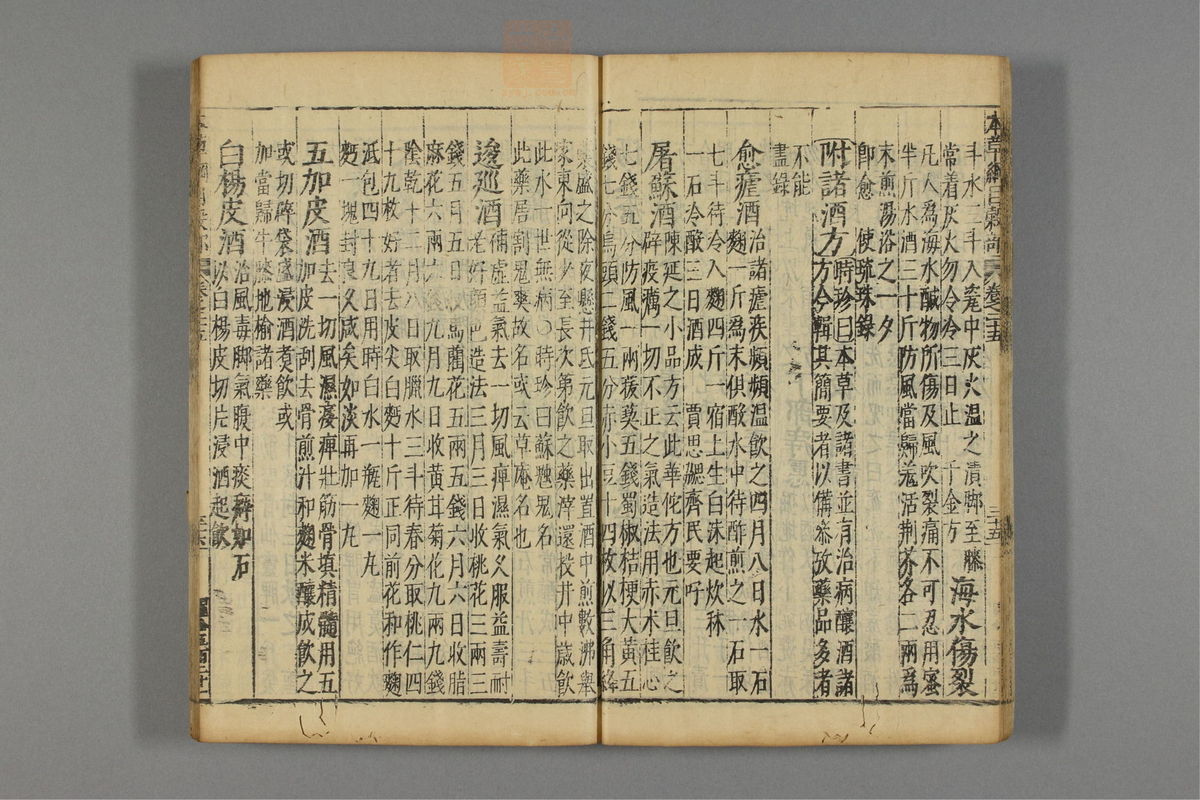 斗水三斗入竈中灰火温之漬脚至膝
常着灰火勿令冷三日止 千金方 海水傷裂
凡人爲海水鹹物所傷及風吹裂痛不可忍用蜜
半斤水酒三十斤防風當歸羗活荆芥各二兩爲
末煎湯浴之一夕
卽愈 使琉球錄
附諸酒方 時珍曰本草及諸書並有治病釀酒諸
方今輯其簡要者以備叅攷藥品多者
不能
盡錄
愈瘧酒 治諸瘧疾頻頻温飲之四月八日水一石
麴一斤爲末俱酘水中待酢煎之一石取
七斗待冷入麴四斤一宿上生白沫起炊秫
一石冷酘三日酒成 賈思勰齊民要呼
屠蘇酒 陳延之小品方云此華佗方也元旦飲之
辟疫癘一切不正之氣造法用赤木桂心
七錢五分防風一兩菝葜五錢蜀椒桔梗大黃五
錢七分烏頭二錢五分赤小豆十四枚以三角絳
囊盛之除夜懸井氐元旦取出置酒中煎數沸舉
家東向從少至長次第飲之藥滓還投井中歲飲
此水一世無病〇時珍曰蘇魈鬼名
此藥居割鬼爽故名或云草庵名也
逡巡酒 補虛益氣去一切風痺濕氣乆服益壽耐
老好顔色造法三月三日收桃花三兩三
錢五月五日收馬藺花五兩五錢六月六日收脂
麻花六兩六錢九月九日收黃甘菊花九兩九錢
陰乾十二月八日取臘水三斗待春分取桃仁四
十九枚好者去皮尖白麪十斤正同前花和作麴
紙包四十九日用時白水一瓶麴一丸
麪一塊封良乆成矣如淡再加一丸
五加皮酒 去一切風濕痿痺壯筋骨填精髓用五
加皮洗刮去骨煎汁和麴米釀成飲之
或切碎袋盛浸酒煑飲或
加當歸牛膝地榆諸藥
白楊皮酒 治風毒脚氣腹中痰癖如石
以白楊皮切片浸酒起飲